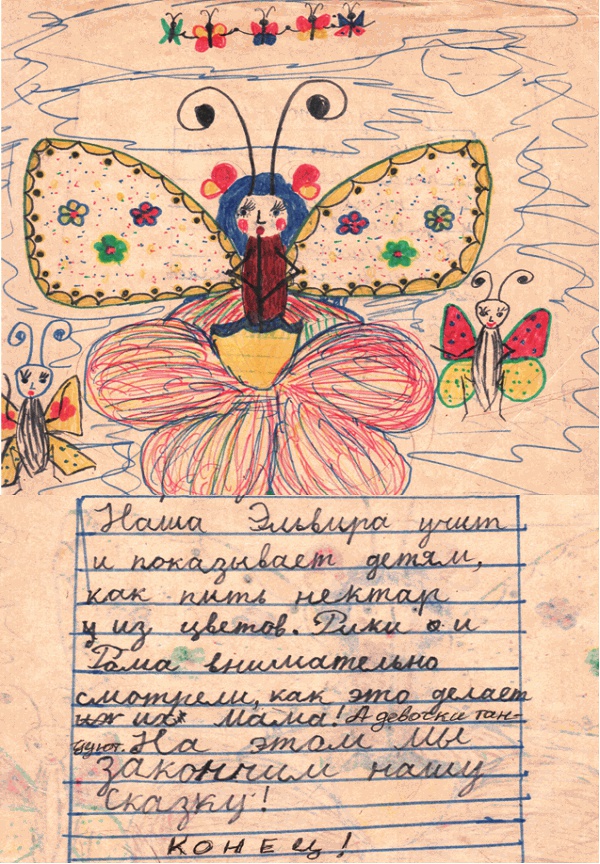 Наша Эльвира учит
и показывает детям,
как пить нектар
из цветов. Рики и
Рома внимательно
смотрели, как это делает
их мама! А девоски тан-
цуют. На этом мы
закончим нашу
сказку!
КОНЕЦ!